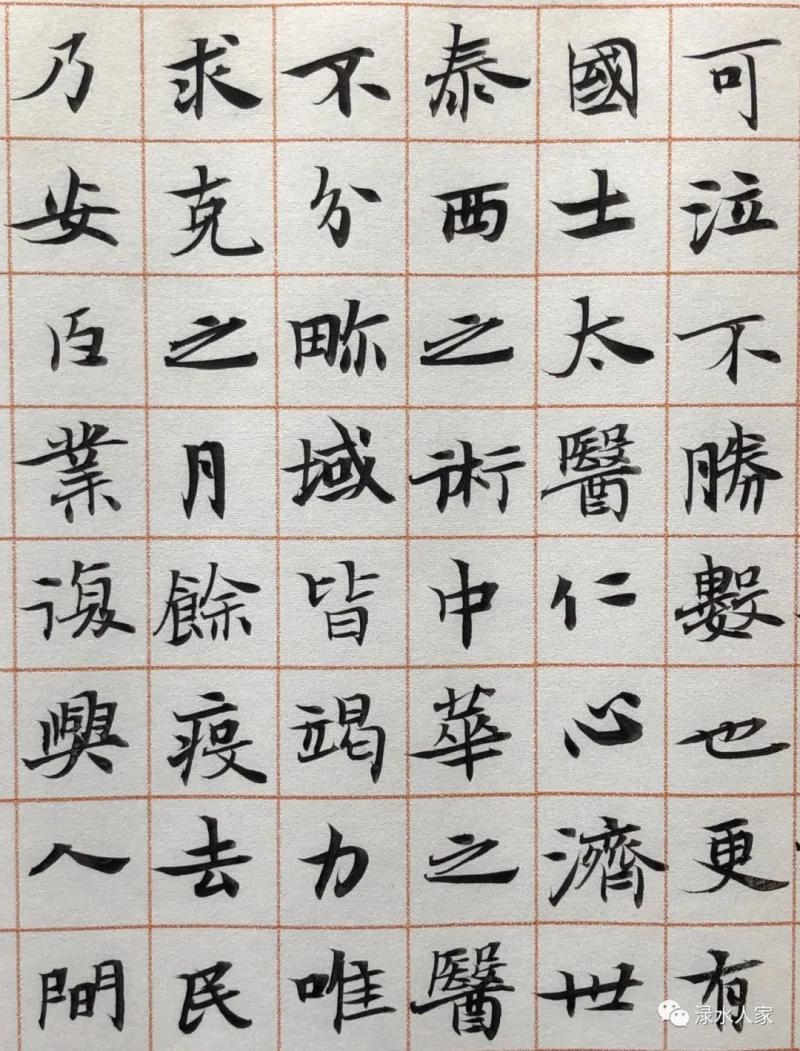 可泣不勝數也更有
國士太醫仁心濟世
泰西之術中華之醫
不分畛域皆竭力唯
求克之月餘疫去民
乃安百業復興人間
渌水人家